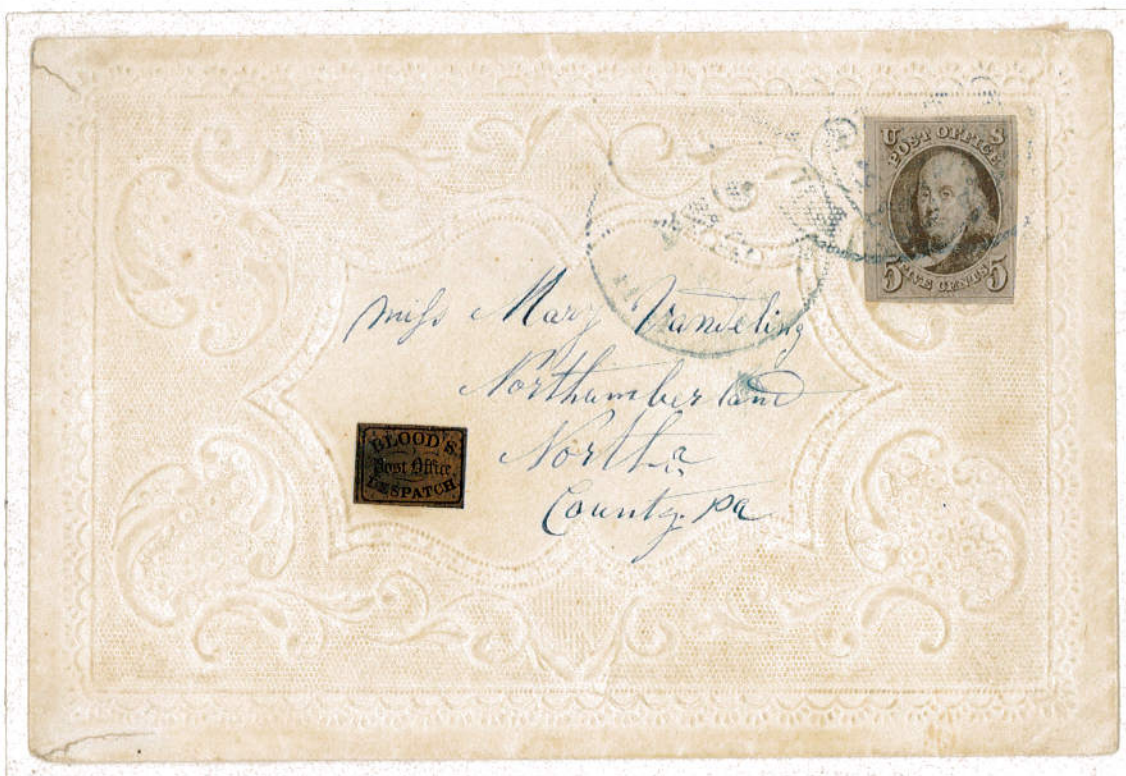 U S
POST OFFICE
5 FIVE CENTS 5
Miss Mary Vandeling
Northumberland
North a
County. Pa
BLOOD'S
Post Office
DESPATCH.